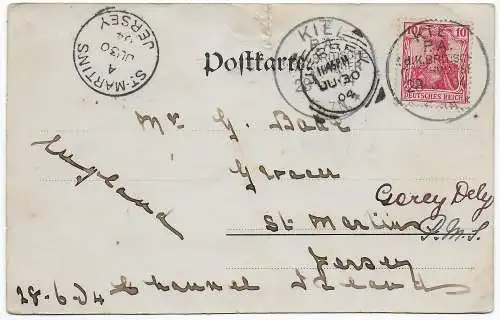 ST. MARTINS
A
JU 30
04
JERSEY
Postkarte
KIEL
JERSEY
JU 30
04
KIEL
P.A.
10
DEUTSCHES REICH
Mr G.
England
St Martins
Gorey Dely
Jersey
28-6-04 Channel Islands